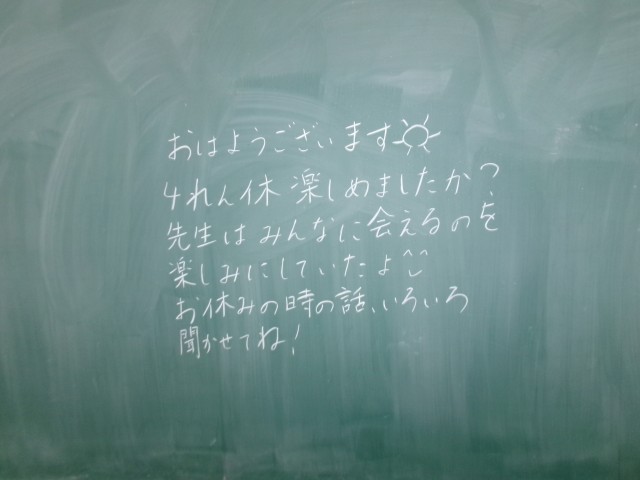 おはようございます
4れん休 楽しめましたか?
先生はみんなに会えるのを
楽しみにしていたよ
お休みの時の話、いろいろ
聞かせてね!